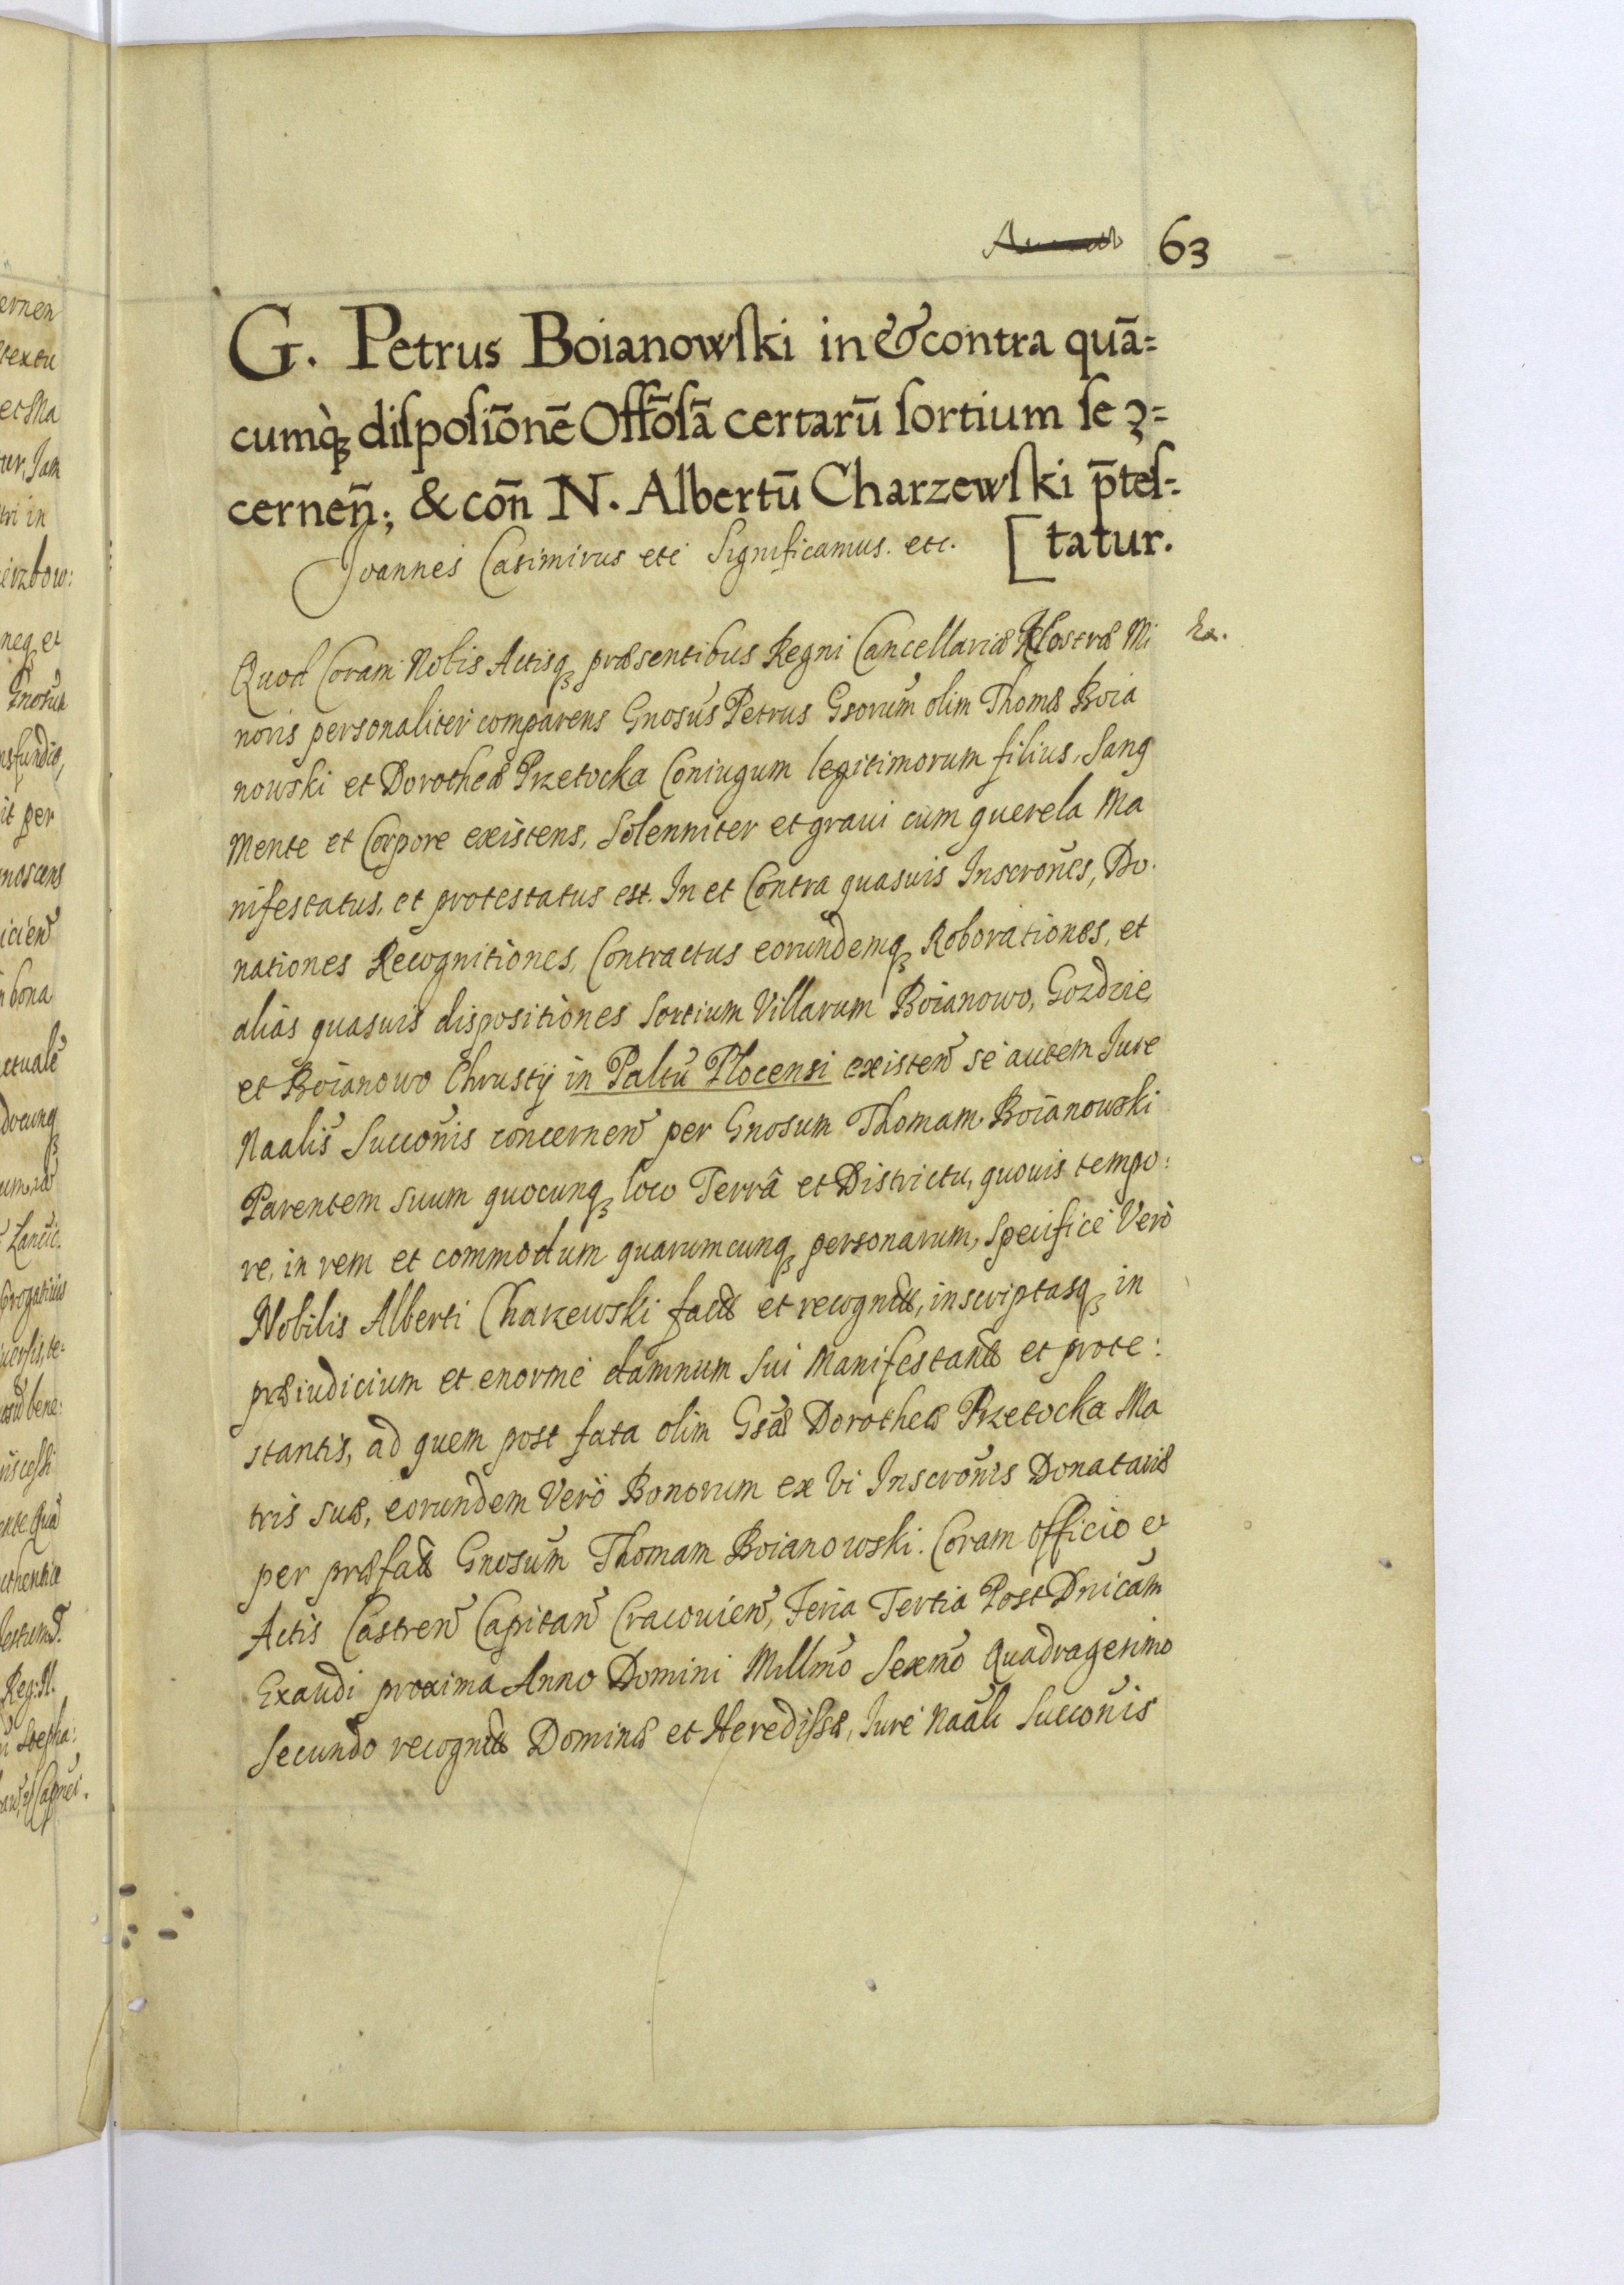 63
G. Petrus Boianowſki in & contra quā=
cumq̀ꝫ diſpoſiōnē Offōſā certarū ſortium ſe ꝯ=
cerneñ; & coñ N. Albertū Charzewſki p̄teſ=
[tatur.
Joannes Casimirus etc Significamus. etc.
Quod Coram Nobis Actisqꝫ præsentibus Regni Cancellariæ Nostræ Mi
noris personaliter comparens Gnosus Petrus Gsorum olim Thomæ Boia
nowski et Dorotheæ Przetocka Coniugum legitimorum filius, Sang
Mente et Corpore existens, Solenniter et graui cum querela Ma
nifestatus, et protestatus est. In et Contra quasuis Inscrones, Do
nationes Recognitiones, Contractus eorundemqꝫ Roborationes, et
alias quasuis dispositiones Sortium Villarum Boianowo, Gozdzie,
et Boianowo Chrustÿ in Paltu Plocensi existen se autem Jure
Naalis Succonis concernen per Gnosum Thomam Boianowski
Parentem suum quocunqꝫ loco Terrâ et Districtu, quouis tempo:
re, in rem et commodum quarumcunqꝫ personarum, Specifice Verò
Nobilis Alberti Charzewski fact et recognit, inscriptasqꝫ in
præiudicium et enorme damnum Sui Manifestant et prote:
stantis, ad quem post fata olim Gsæ Dorotheæ Przetocka Ma
tris suæ, eorundem Verò Bonorum ex Vi Inscronis Donatariæ
per præfat Gnosum Thomam Boianowski. Coram Officio et
Actis Castren Capitan Cracouien, Feria Tertia Post Dnicam
Exaudi proxima Anno Domini Millmo Sexmo Quadragesimo
Secundo recognit Dominæ et Heredissæ, Jure Naali Succonis